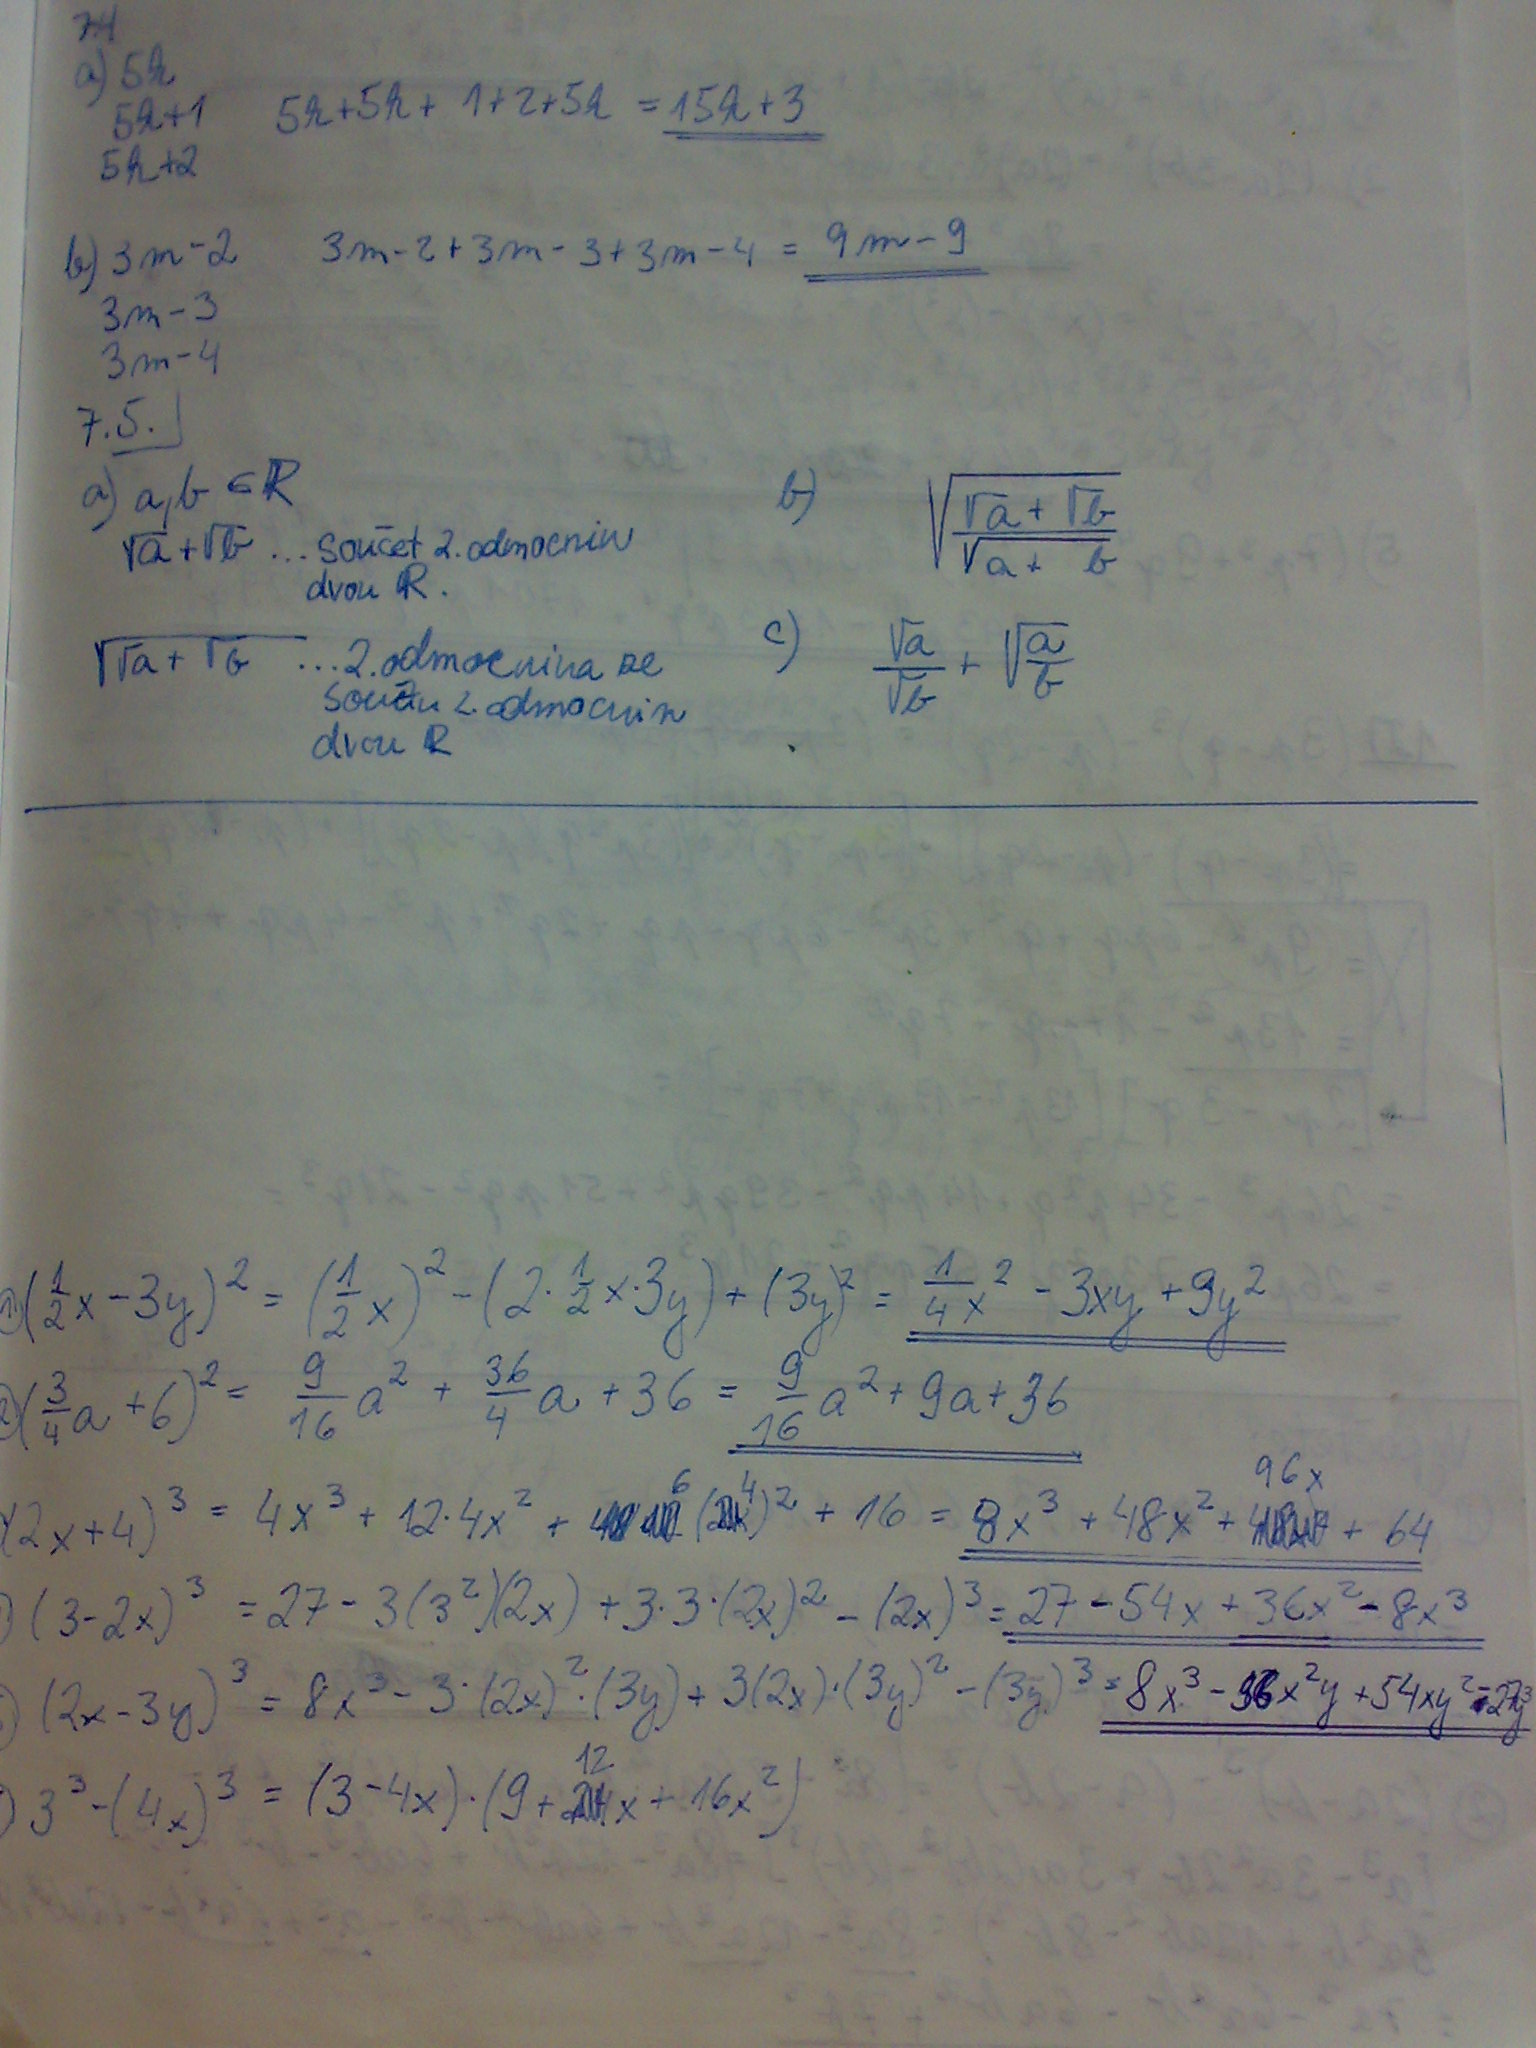 7.4
a) 5k
5k+1 5k+5k+ 1+2+5k = 15k+3
5k+2
b) 3m-2 3m-2+3m-3+3m-4 = 9m-9
3m-3
3m-4
7.5.
a) a,b ∈ R
√a+√b ... součet 2. odmocnin
dvou R.
√(√a+√b) ... 2. odmocnina ze
součtu 2. odmocnin
dvou R
b) √((√a+√b)/√(a+b))
c) √a/√b + √(a/b)
1) (1/2x-3y)² = (1/2x)² - (2·1/2x·3y) + (3y)² = 1/4x² - 3xy + 9y²
2) (3/4a+6)² = 9/16a² + 36/4a + 36 = 9/16a² + 9a + 36
(2x+4)³ = 4x³ + 12·4x² + 6 (4)² + 16 = 8x³ + 48x² + 96x + 64
) (3-2x)³ = 27 - 3(3²)(2x) + 3·3·(2x)² - (2x)³ = 27 - 54x + 36x² - 8x³
) (2x-3y)³ = 8x³ - 3·(2x)²·(3y) + 3(2x)·(3y)² - (3y)³ = 8x³ - 36x²y + 54xy² - 27y³
) 3³ - (4x)³ = (3-4x)·(9+12x+16x²)